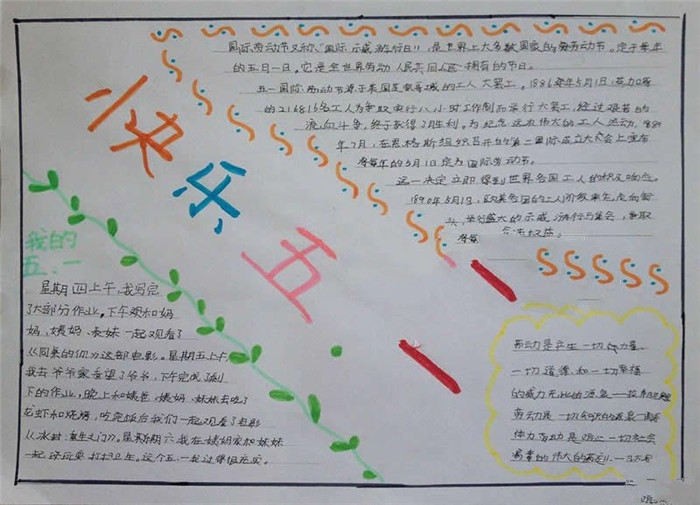 国际劳动节又称"国际示威游行日",是世界上大多数国家的劳动节。定于每年
的五月一日。它是全世界劳动人民共同拥有的节日。
五一国际劳动节源于美国芝加哥城的工人大罢工。1886年5月1日,芝加哥
的216816名工人为争取实行八小时工作制而举行大罢工,经过艰苦的
流血斗争,终于获得了胜利。为纪念这次伟大的工人运动,1889
年7月,在恩格斯组织召开的第二国际成立大会上宣布
将每年的5月1日定为国际劳动节。
这一决定立即得到世界各国工人的积极响应。
1890年5月1日,欧美各国的工人阶级率先走向街
头,举行盛大的示威游行与集会,争取
合法权益。
快乐五一
我的
五.一
星期四上午,我写完
了大部分作业。下午我和妈
妈、姨妈、表妹一起观看了
这部电影。星期五上午
我去爷爷家看望了爷爷,下午完成了剩
下的作业,晚上和姨爸、姨妈、妹妹去吃了
龙虾和烧烤,吃完饭后我们一起观看了电影
星期六我在姨妈家和妹妹
一起
劳动是产生一切力量、
一切道德和一切幸福
的威力无比的源泉——拉·乔乃尼奥里
劳动是一切知识的源泉——陶铸
体力劳动是
的伟大的